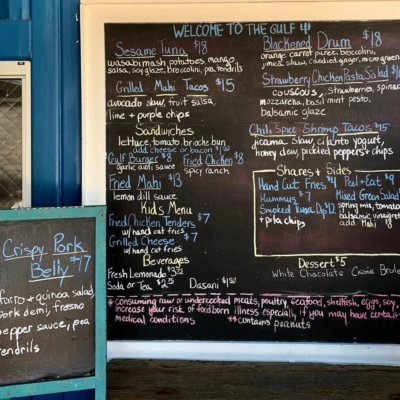 WELCOME TO THE GULF
Sesame Tuna $18
wasabi mash potatoes, mango
salsa, soy glaze, broccolini, pea tendrils
Grilled Mahi Tacos $15
avocado slaw, fruit salsa,
lime + purple chips
Sandwiches
lettuce, tomato, brioche bun
add cheese or bacon
Gulf Burger $8 Fried Chicken $8
garlic aioli sauce spicy ranch
Fried Mahi $13
lemon dill sauce
Kid's Menu
Fried Chicken Tenders $7
w/ hand cut fries
Grilled Cheese $7
w/ hand cut fries
Beverages
Fresh Lemonade
Soda or Tea Dasani
Blackened Drum $18
orange carrot puree, broccolini,
jicama slaw, candied ginger, micro greens
Strawberry Chicken Pasta Salad
couscous, strawberries, spinach
mozzarella, basil mint pesto,
balsamic glaze
Chili Spice Shrimp Tacos $15
jicama slaw, cilantro yogurt,
honey dew, pickled peppers + chips
Shares + Sides
Hand Cut Fries $4
Hummus $7
Smoked Tuna Dip $12
+ pita chips
Peel + Eat
Mixed Green Salad
spring mix, tomato
balsamic vinaigrette
add Mahi
Dessert $5
White Chocolate Creme Brulee
* consuming raw or undercooked meats, poultry, seafood, shellfish, eggs, soy,
increase your risk of foodborn illness especially if you may have certain
medical conditions ** contains peanuts
Crispy Pork
Belly $17
+ quinoa salad,
pork demi, fresno
pepper sauce, pea
tendrils